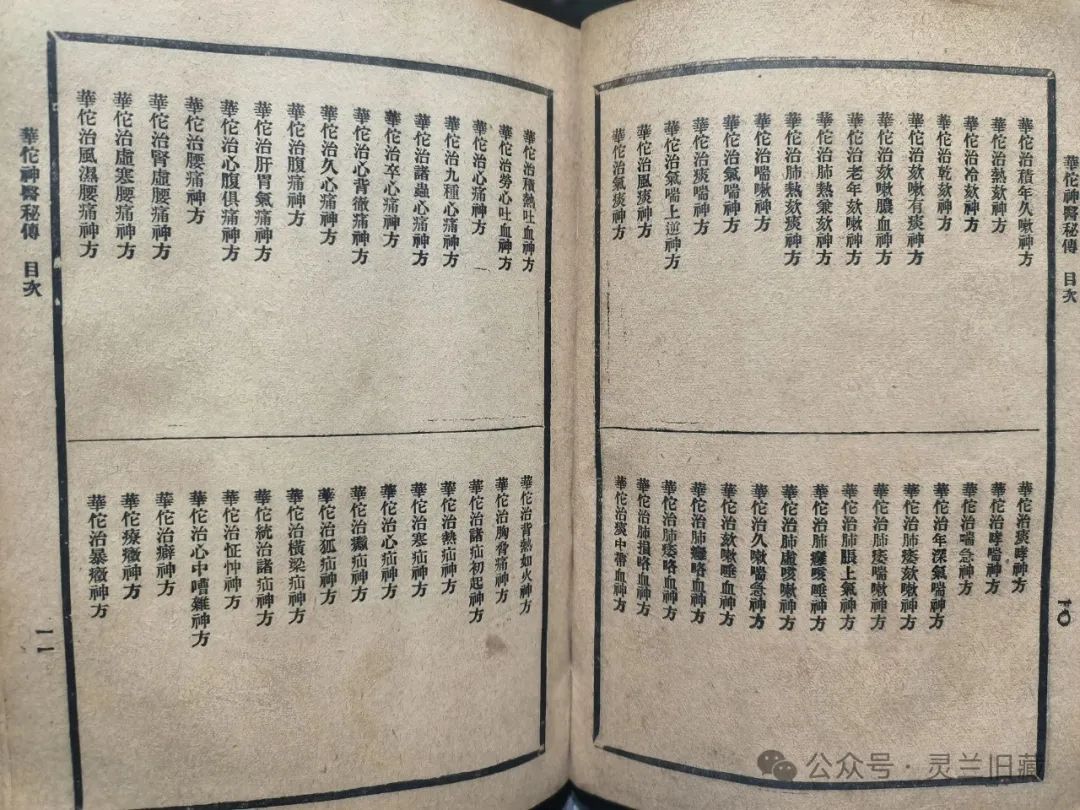 華佗神醫秘傳 目次
華佗治積年久嗽神方
華佗治熱欬神方
華佗治冷欬神方
華佗治乾欬神方
華佗治欬嗽有痰神方
華佗治欬嗽膿血神方
華佗治老年欬嗽神方
華佗治肺熱兼欬神方
華佗治肺熱欬痰神方
華佗治喘嗽神方
華佗治氣喘神方
華佗治痰喘神方
華佗治氣喘上逆神方
華佗治風痰神方
華佗治氣痰神方
華佗治痰哮神方
華佗治哮喘神方
華佗治喘急神方
華佗治年深氣喘神方
華佗治肺痿欬嗽神方
華佗治肺痿喘嗽神方
華佗治肺脹上氣神方
華佗治肺癰咳唾神方
華佗治肺虛咳嗽神方
華佗治久嗽喘急神方
華佗治欬嗽唾血神方
華佗治肺癰咯血神方
華佗治肺痿咯血神方
華佗治肺損咯血神方
華佗治痰中帶血神方
一〇
華佗治積熱吐血神方
華佗治勞心吐血神方
華佗治心痛神方
華佗治九種心痛神方
華佗治諸蟲心痛神方
華佗治卒心痛神方
華佗治心背徹痛神方
華佗治久心痛神方
華佗治腹痛神方
華佗治肝胃氣痛神方
華佗治心腹俱痛神方
華佗治腰痛神方
華佗治腎虛腰痛神方
華佗治虛寒腰痛神方
華佗治風濕腰痛神方
華佗治背熱如火神方
華佗治胸脅痛神方
華佗治諸疝初起神方
華佗治熱疝神方
華佗治寒疝神方
華佗治心疝神方
華佗治㿗疝神方
華佗治狐疝神方
華佗治橫梁疝神方
華佗統治諸疝神方
華佗治怔忡神方
華佗治心中嘈雜神方
華佗治癖神方
華佗療癥神方
華佗治暴癥神方
華佗神醫秘傳 目次
一一
公众号·灵兰旧藏